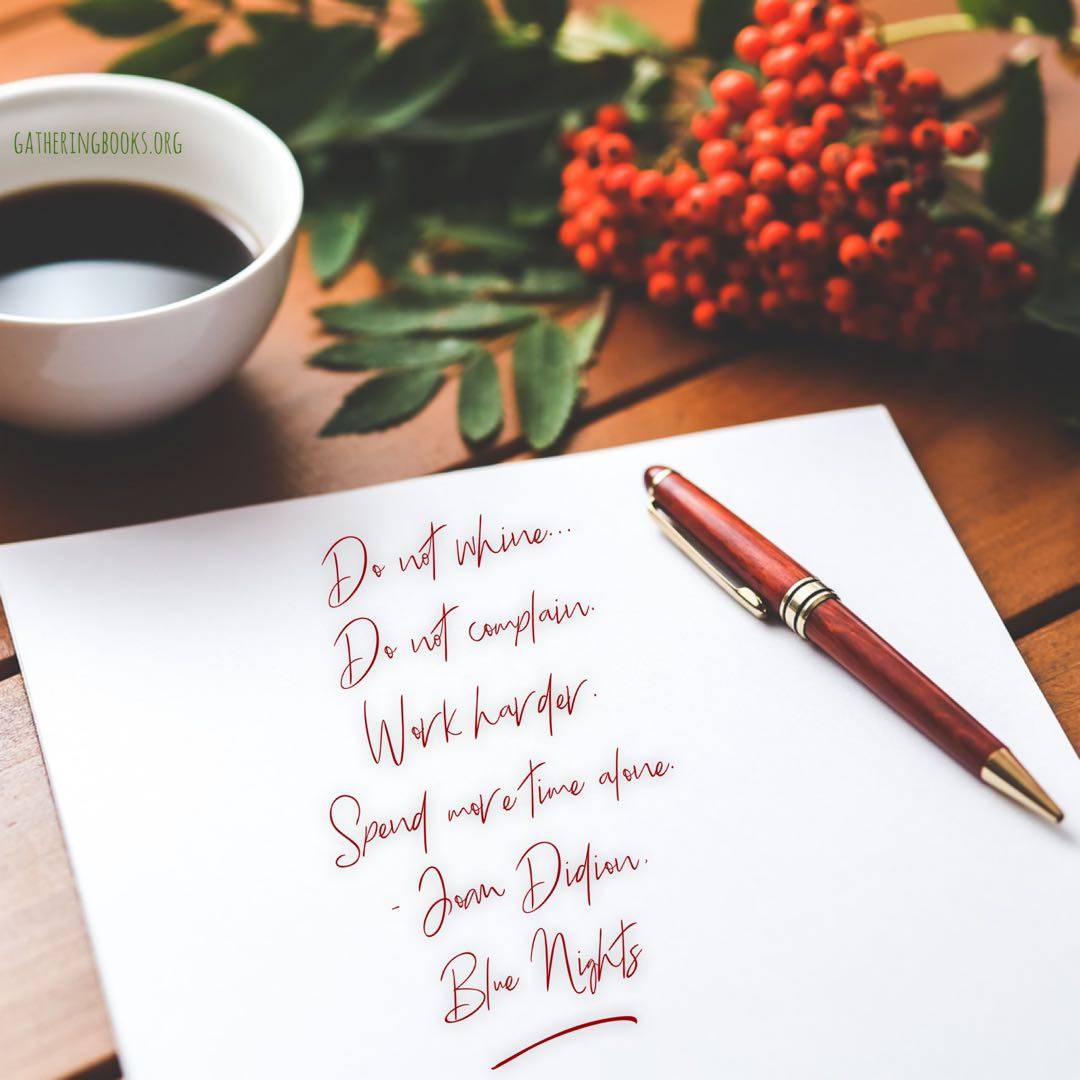 GATHERINGBOOKS.ORG
Do not whine...
Do not complain.
Work harder.
Spend more time alone.
- Joan Didion.
Blue Nights